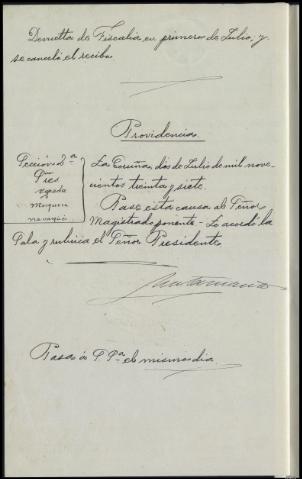 Devuelta de Fiscalía en primero de Julio, y
se canceló el recibo.
Providencia
Sección 2ª
Sres
La Coruña, dos de Julio de mil nove-
cientos treinta y siete.
Pase esta causa al Señor
Magistrado ponente - Lo acordó la
Sala y rubrica el Señor Presidente
Pasa a S. Sª el mismo dia.